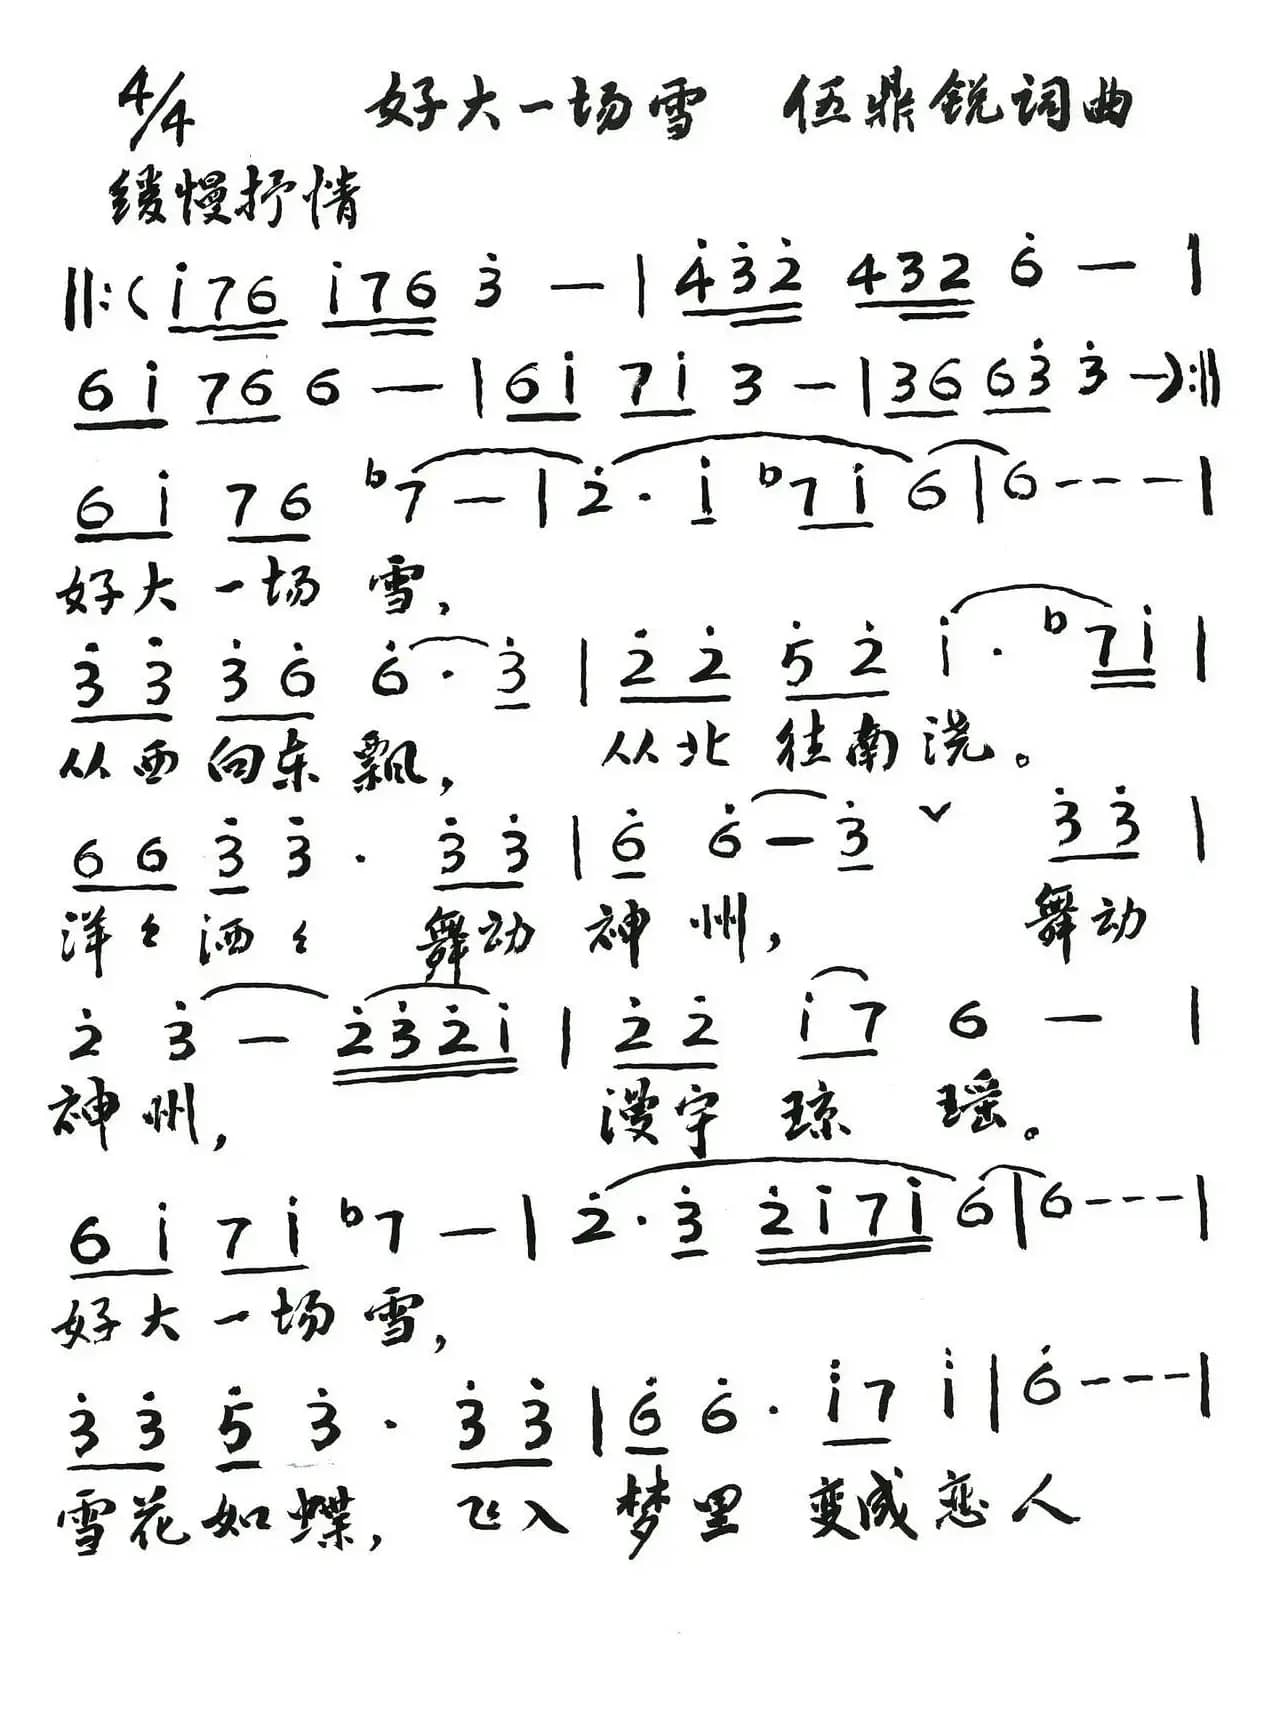 4/4 好大一场雪 伍鼎锐词曲
缓慢抒情
‖:(i̇76 i̇76 3̇ — | 4̇3̇2̇ 432 6̇ — |
6i̇ 76 6 — | 6i̇ 7i̇ 3 — | 36 63̇ 3̇ —):‖
6i̇ 76 b7 — | 2̇·i̇ b7i̇ 6 | 6 - - - |
好大一场雪，
3̇3̇ 3̇6̇ 6̇·3̇ | 2̇2̇ 5̇2̇ i̇·b7i̇ |
从西向东飘， 从北往南洗。
66 3̇ 3̇· 3̇3̇ | 6̇ 6̇ — 3̇ ˅ 3̇3̇ |
洋々洒々 舞动神州， 舞动
2̇ 3̇ — 2̇3̇2̇i̇ | 2̇2̇ i̇7 6 — |
神州， 漫宇琼瑶。
6i̇ 7i̇ b7 — | 2̇·3̇ 2̇i̇7i̇ 6 | 6 - - - |
好大一场雪，
3̇3̇ 5̇ 3̇· 3̇3̇ | 6̇ 6̇· i̇7 i̇ | 6̇ - - - |
雪花如蝶， 飞入梦里变成恋人